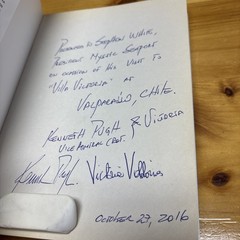 PRESENTED TO STEPHEN WHITE,
PRESIDENT MYSTIC SEAPORT
ON OCCASION OF HIS VISIT TO
"VILLA VICTORIA" AT
VALPARAÍSO, CHILE.
KENNETH PUGH & VICTORIA
VICE ADMIRAL (RET.)
OCTOBER 29, 2016